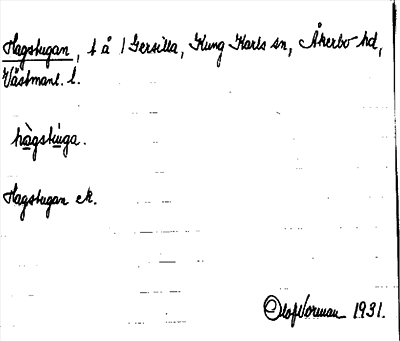 Hagstugan, t å 1 Gersilla, Kung Karls sn, Åkerbo hd,
Västmanl. l.
hàgstúga.
Hagstugan ek.
Olof Vorman 1931.